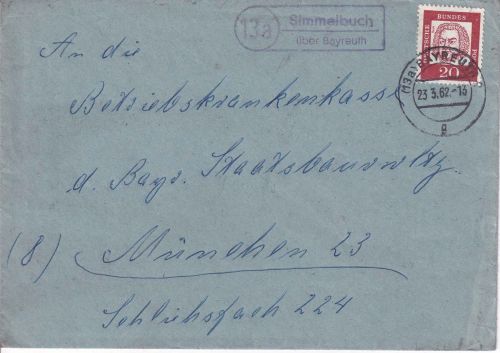 13a
Simmelbuch
über Bayreuth
DEUTSCHE BUNDESPOST
20
(13a) BAYREUTH 2
23.3.62.-13
g
An die
Betriebskrankenkasse
d. Bayr. Staatsbauverwltg.
(8) München 23
Schließfach 224